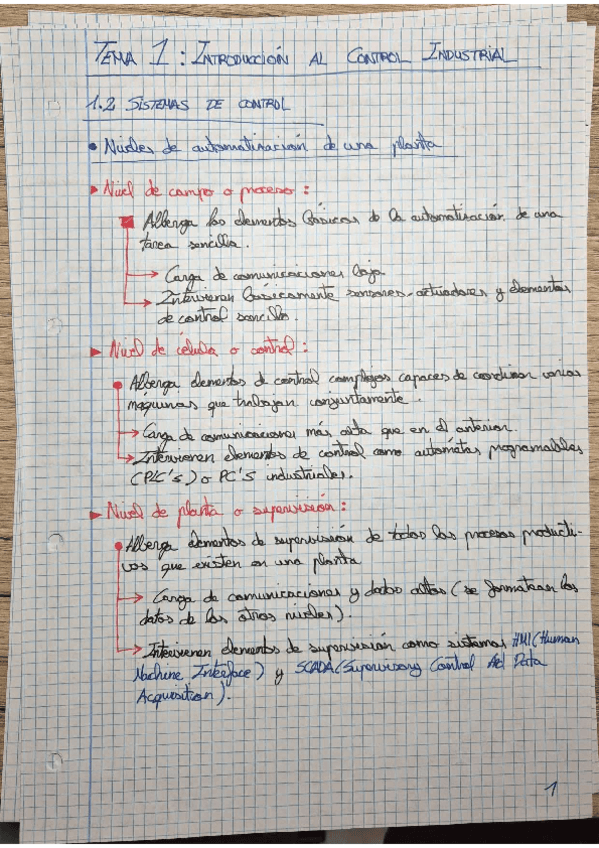 TEMA 1: INTRODUCCIÓN AL CONTROL INDUSTRIAL
1.2 SISTEMAS DE CONTROL
• Niveles de automatización de una planta
► Nivel de campo o proceso:
■ Alberga los elementos básicos de la automatización de una
tarea sencilla.
→ Carga de comunicaciones baja
→ Intervienen básicamente sensores, actuadores y elementos
de control sencillo.
► Nivel de célula o control:
• Alberga elementos de control complejos capaces de coordinar varias
máquinas que trabajan conjuntamente.
→ Carga de comunicaciones más alta que en el anterior.
→ Intervienen elementos de control como autómatas programables
(PLC's) o PC'S industriales.
► Nivel de planta o supervisión:
• Alberga elementos de supervisión de todos los procesos producti-
vos que existen en una planta
→ Carga de comunicaciones y datos altos (se formatean los
datos de los otros niveles).
→ Intervienen elementos de supervisión como sistemas HMI (Human
Machine Interface) y SCADA (Supervisory Control And Data
Acquisition).
1